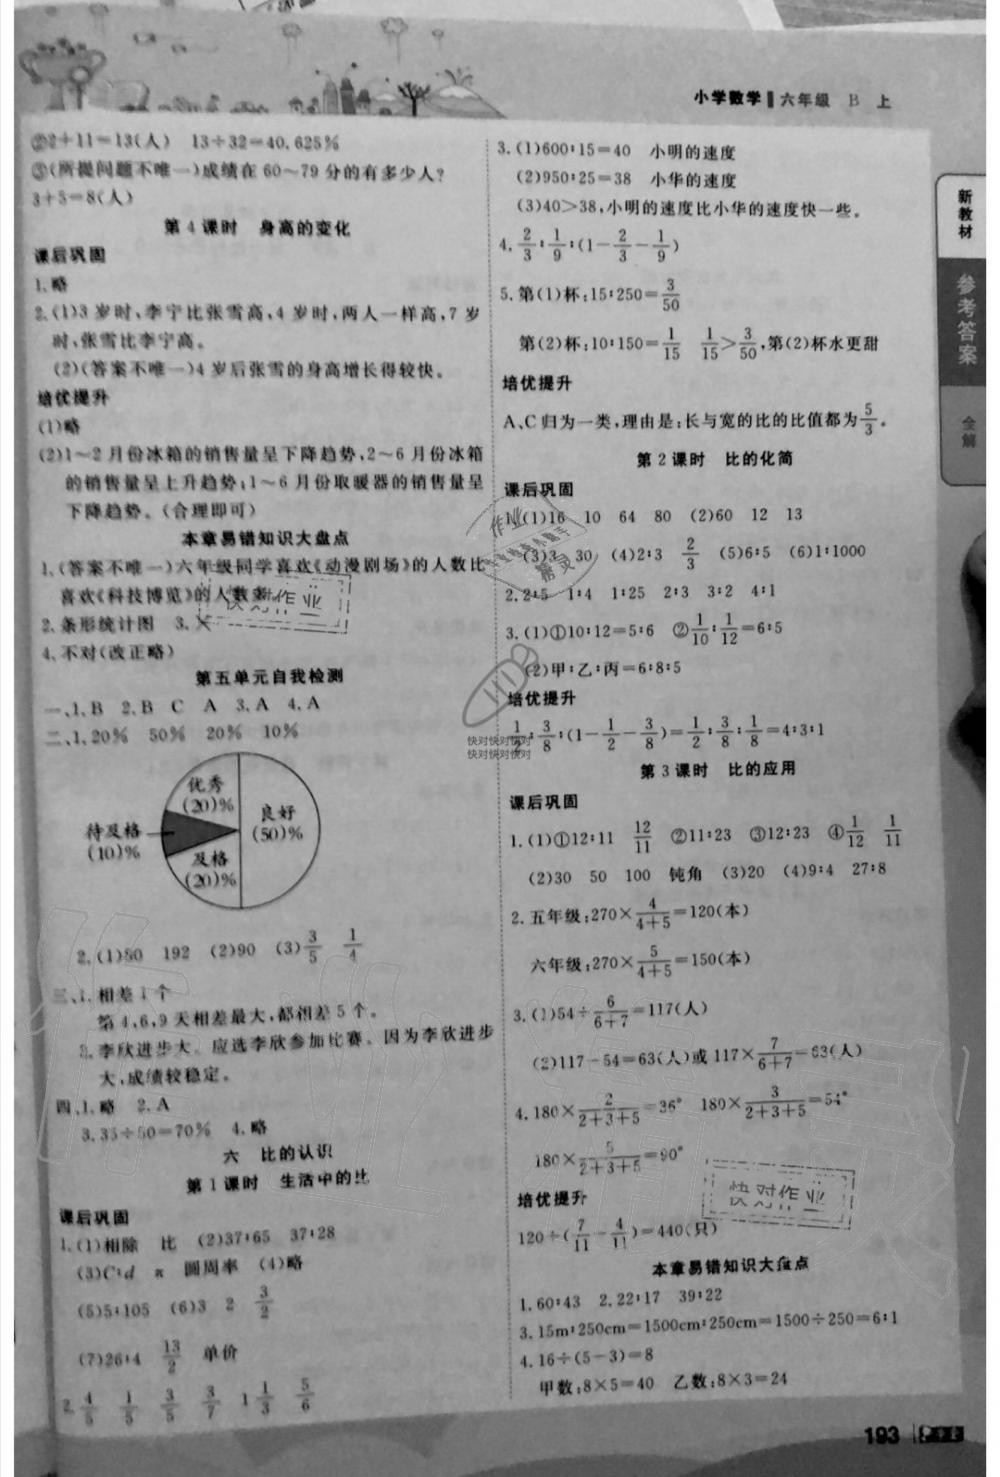 小学数学 六年级 B 上
②2+11=13(人) 13÷32=40.625%
③(所提问题不唯一)成绩在60～79分的有多少人?
3+5=8(人)
第4课时 身高的变化
课后巩固
1.略
2.(1)3岁时,李宁比张雪高,4岁时,两人一样高,7岁
时,张雪比李宁高。
(2)(答案不唯一)4岁后张雪的身高增长得较快。
培优提升
(1)略
(2)1～2月份冰箱的销售量呈下降趋势,2～6月份冰箱
的销售量呈上升趋势;1～6月份取暖器的销售量呈
下降趋势。(合理即可)
本章易错知识大盘点
1.(答案不唯一)六年级同学喜欢《动漫剧场》的人数比
喜欢《科技博览》的人数多
2.条形统计图 3.×
4.不对(改正略)
第五单元自我检测
一、1.B 2.B C A 3.A 4.A
二、1.20% 50% 20% 10%
优秀
(20)%
良好
(50)%
待及格
(10)%
及格
(20)%
2.(1)80 192 (2)90 (3)3/5 1/4
三、1.相差1个
第4,6,9天相差最大,都相差5个。
2.李欣进步大。应选李欣参加比赛。因为李欣进步
大,成绩较稳定。
四、1.略 2.A
3.35÷50=70% 4.略
六 比的认识
第1课时 生活中的比
课后巩固
1.(1)相除 比 (2)37∶65 37∶28
(3)C∶d π 圆周率 (4)略
(5)5∶105 (6)3 2 3/2
(7)26∶4 13/2 单价
2.4/5 1/5 3/5 3/7 1 1/3 5/6
3.(1)600∶15=40 小明的速度
(2)950∶25=38 小华的速度
(3)40>38,小明的速度比小华的速度快一些。
4.2/3∶1/9∶(1-2/3-1/9)
5.第(1)杯:15∶250=3/50
第(2)杯:10∶150=1/15 1/15>3/50,第(2)杯水更甜
培优提升
A、C归为一类,理由是:长与宽的比的比值都为5/3。
第2课时 比的化简
课后巩固
1.(1)16 10 64 80 (2)60 12 13
(3)3 30 (4)2∶3 2/3 (5)6∶5 (6)1∶1000
2.2∶5 1∶4 1∶25 2∶3 3∶2 4∶1
3.(1)①10∶12=5∶6 ②1/10∶1/12=6∶5
(2)甲∶乙∶丙=6∶8∶5
培优提升
1/2∶3/8∶(1-1/2-3/8)=1/2∶3/8∶1/8=4∶3∶1
第3课时 比的应用
课后巩固
1.(1)①12∶11 12/11 ②11∶23 ③12∶23 ④1/12 1/11
(2)30 50 100 钝角 (3)20 (4)9∶4 27∶8
2.五年级:270×4/(4+5)=120(本)
六年级:270×5/(4+5)=150(本)
3.(1)54÷6/(6+7)=117(人)
(2)117-54=63(人)或117×7/(6+7)=63(人)
4.180×2/(2+3+5)=36° 180×3/(2+3+5)=54°
180×5/(2+3+5)=90°
培优提升
120÷(7/11-4/11)=440(只)
本章易错知识大盘点
1.60∶43 2.22∶17 39∶22
3.15m∶250cm=1500cm∶250cm=1500÷250=6∶1
4.16÷(5-3)=8
甲数:8×5=40 乙数:8×3=24
新教材
参考答案
全解
193
快对作业
作业
精灵
快对快对快对
快对快对快对
快对作业